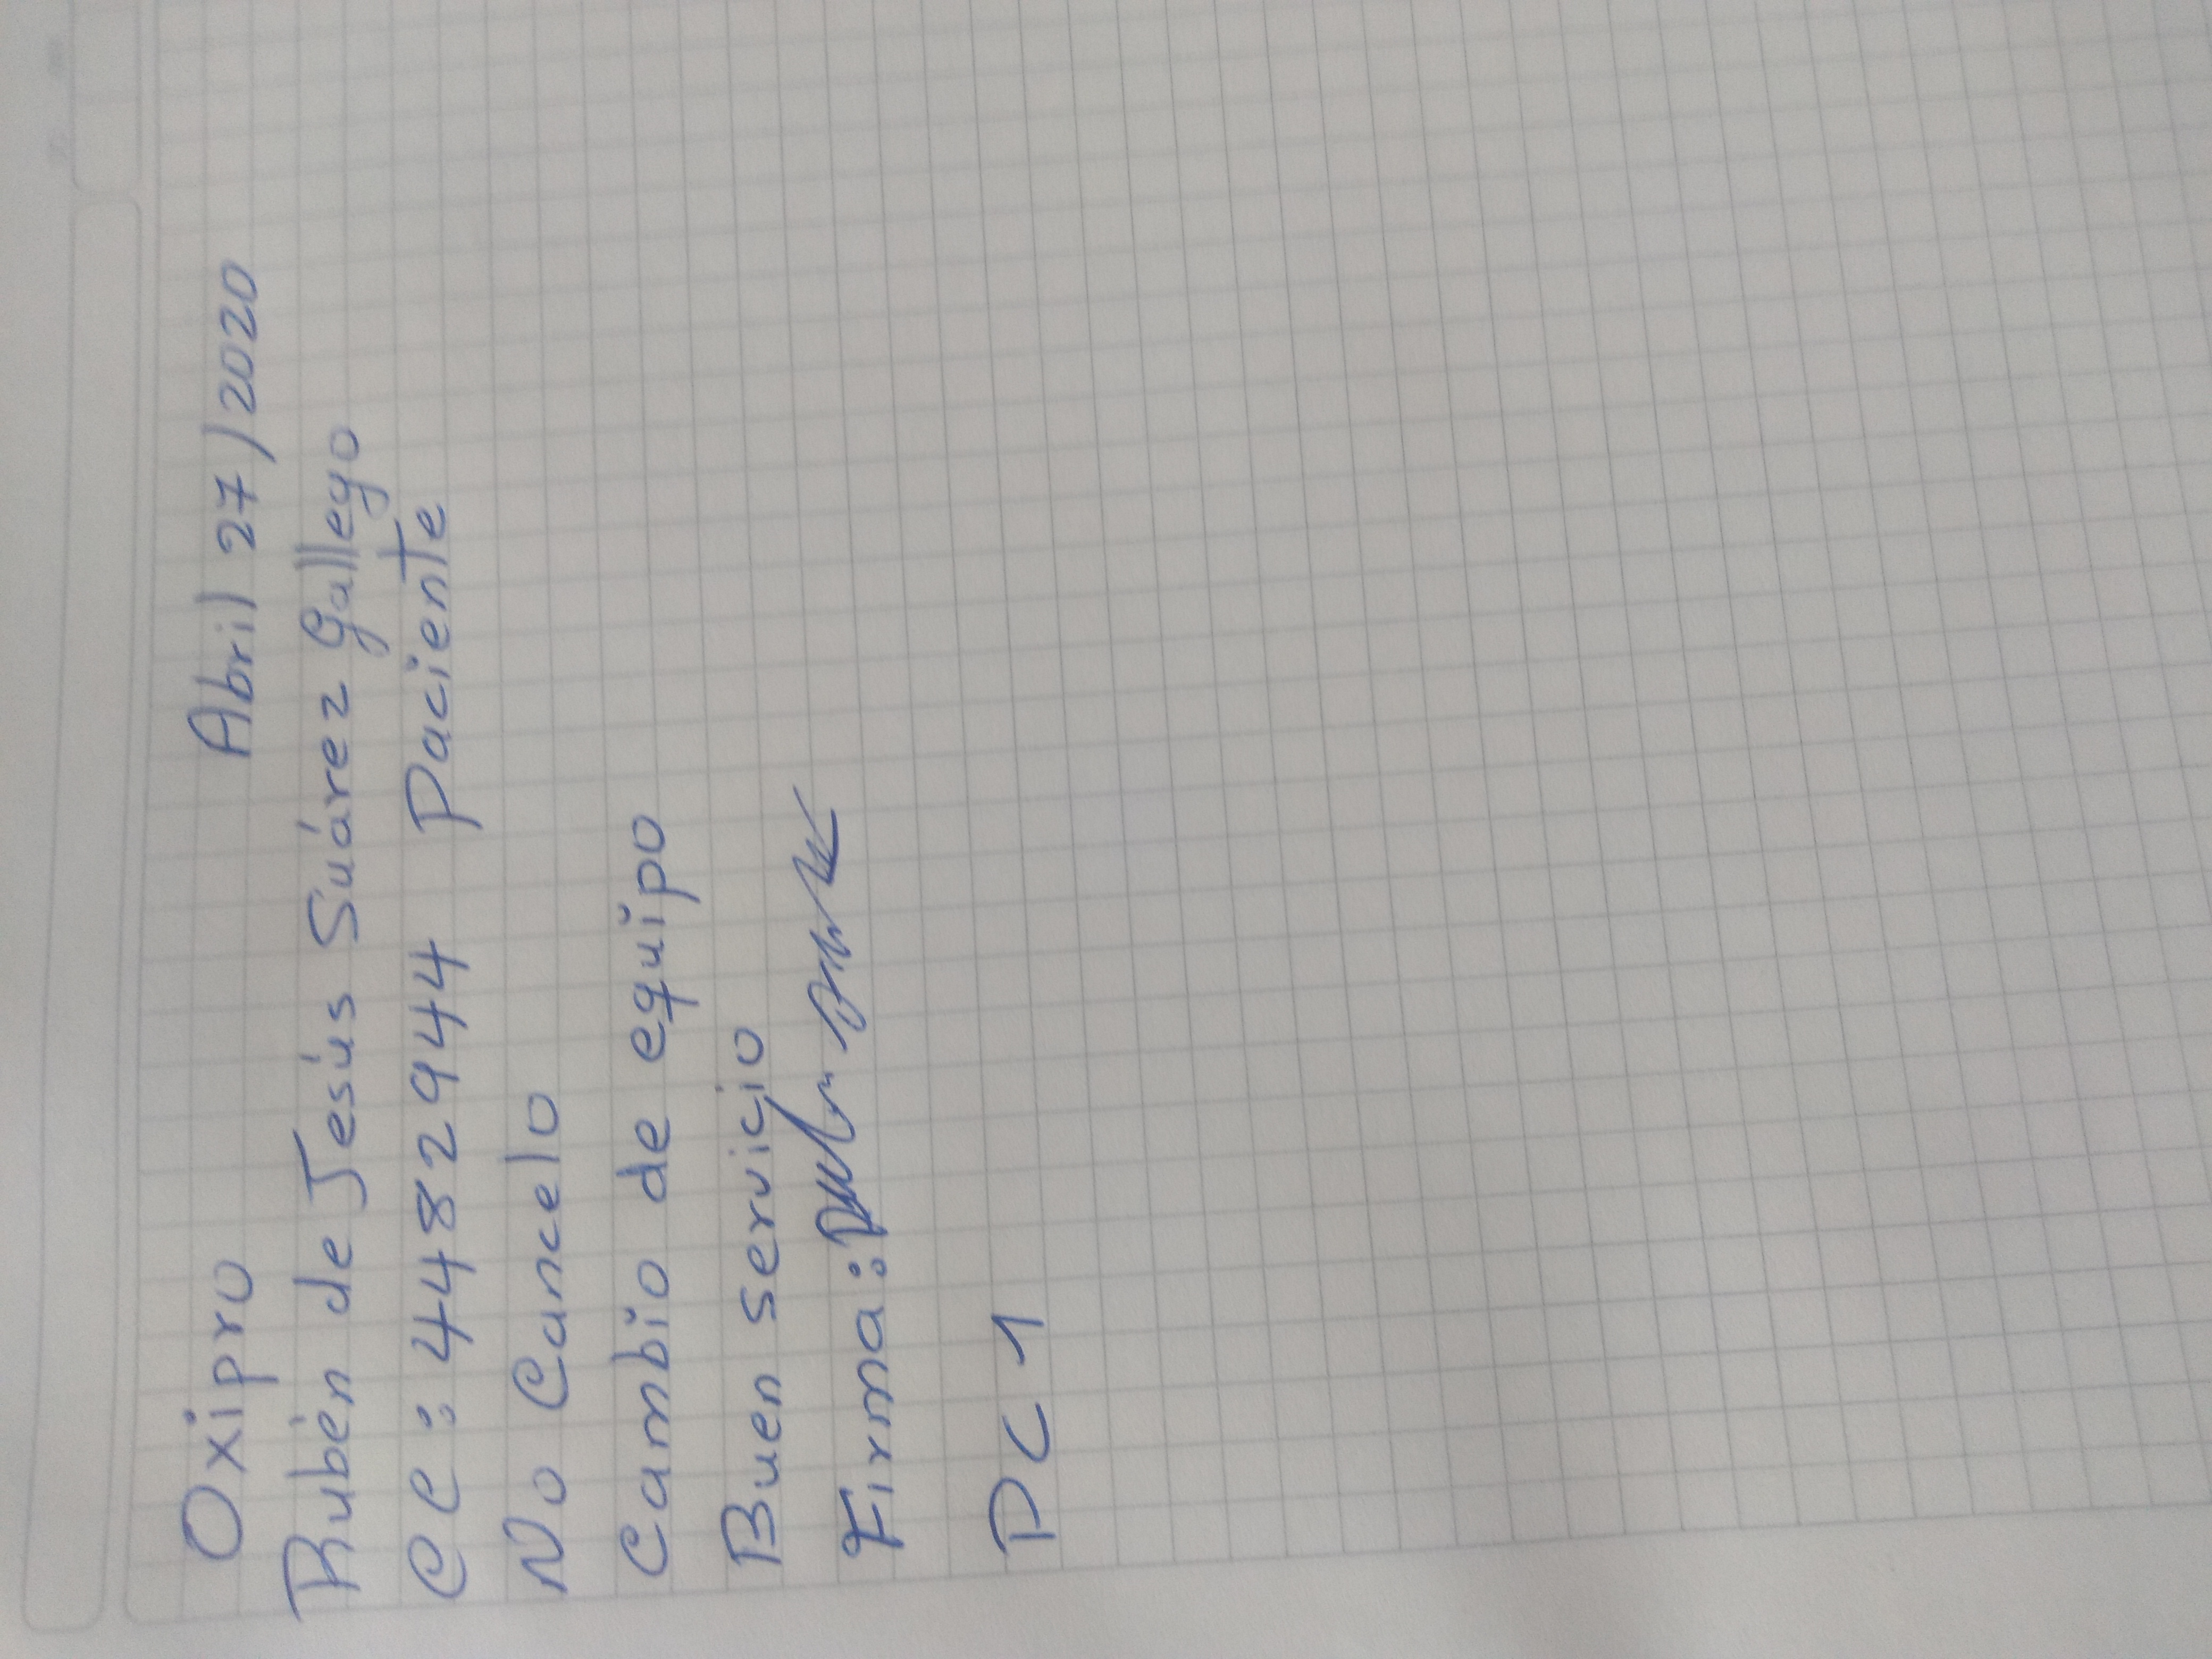 Oxipro Abril 27/2020
Rubén de Jesús Suárez Gallego
CC: 4482944 Paciente
No Cancelo
Cambio de equipo
Buen servicio
Firma:
PC1